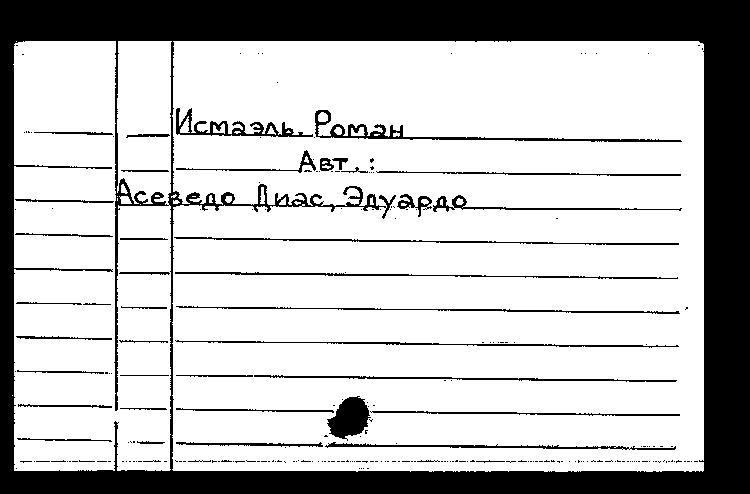 Исмаэль. Роман
Авт.:
Асеведо Диас, Эдуардо